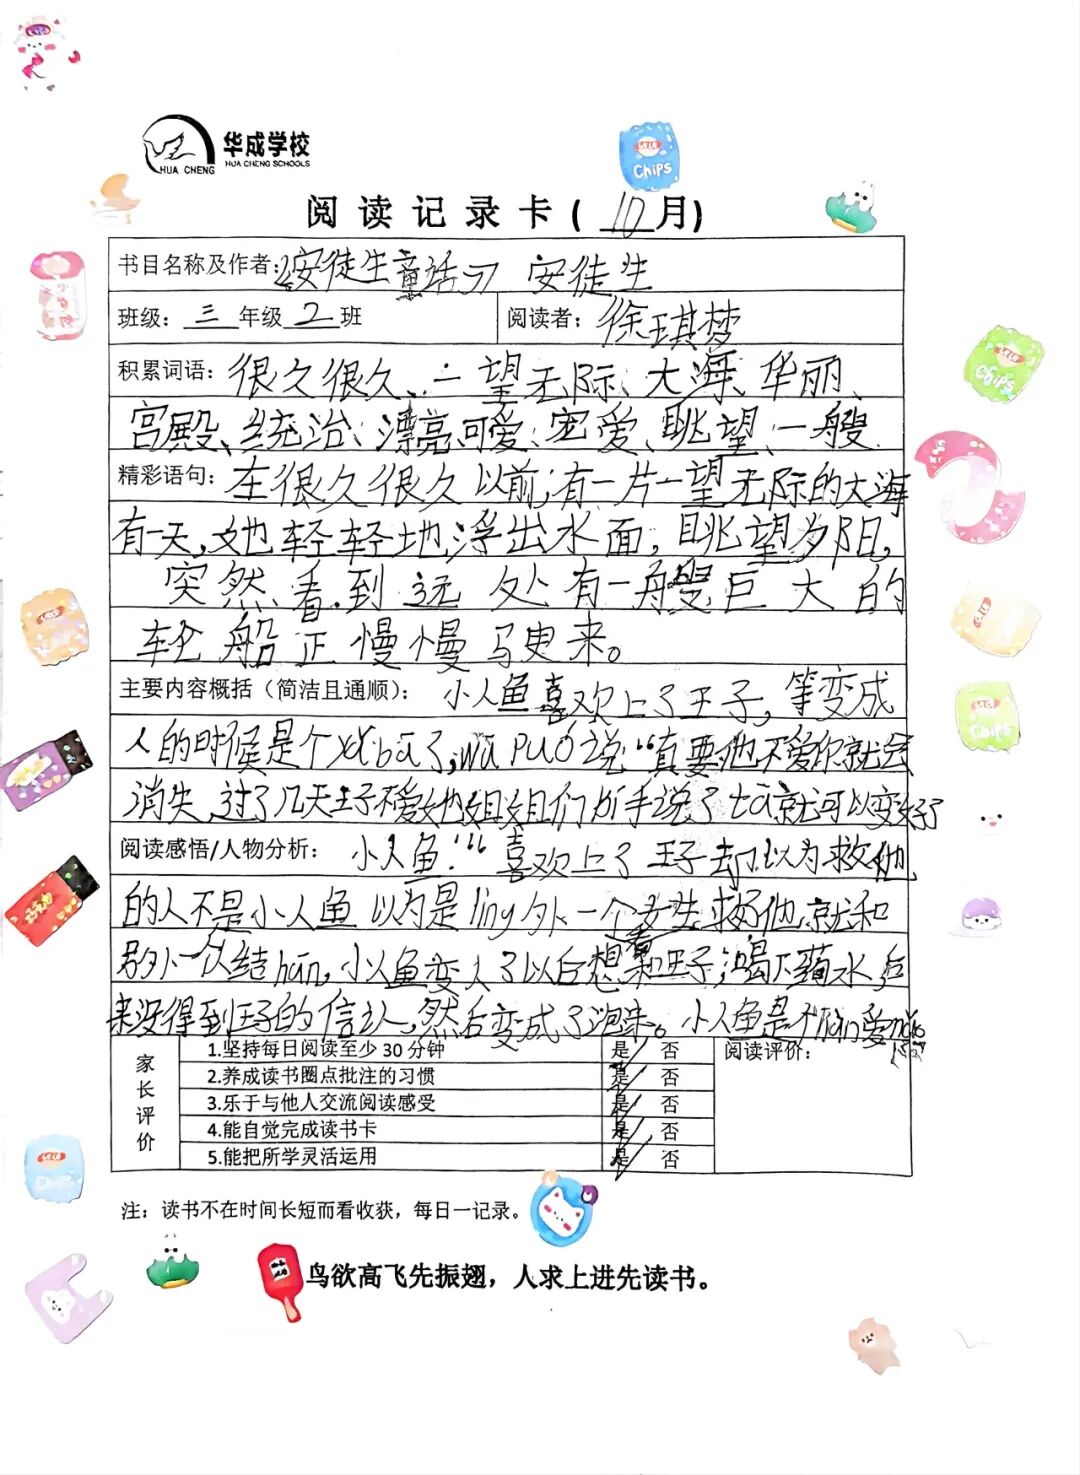 华成学校
HUA CHENG SCHOOLS
HUA CHENG
阅读记录卡(10月)
书目名称及作者:《安徒生童话》 安徒生
班级: 三 年级 2 班 阅读者: 徐琪梦
积累词语: 很久很久、一望无际、大海、华丽、
宫殿、统治、漂亮可爱、宠爱、眺望、一艘
精彩语句: 在很久很久以前,有一片一望无际的大海
有一天,她轻轻地浮出水面,眺望夕阳,
突然看到远处有一艘巨大的
轮船正慢慢马更来。
主要内容概括(简洁且通顺): 小人鱼喜欢上了王子,等变成
人的时候是个 了,wū 说“真要他不爱你就会
消失,过了几天王子不爱她姐姐们 手说了 tā就可以变好了
阅读感悟/人物分析: 小人鱼!“喜欢上了王子去却以为救他
的人不是小人鱼以为是ling外一个女生求好他,就和
另外一个人结hūn,小人鱼变人了以后想和王子 水,后
来没得到王子的信认,然后变成了泡末。小人鱼是个 爱
家长评价
1.坚持每日阅读至少30分钟 是 否
2.养成读书圈点批注的习惯 是 否
3.乐于与他人交流阅读感受 是 否
4.能自觉完成读书卡 是 否
5.能把所学灵活运用 是 否
阅读评价:
注:读书不在时间长短而看收获,每日一记录。
鸟欲高飞先振翅,人求上进先读书。
Chips
Chips
Chips
Chips